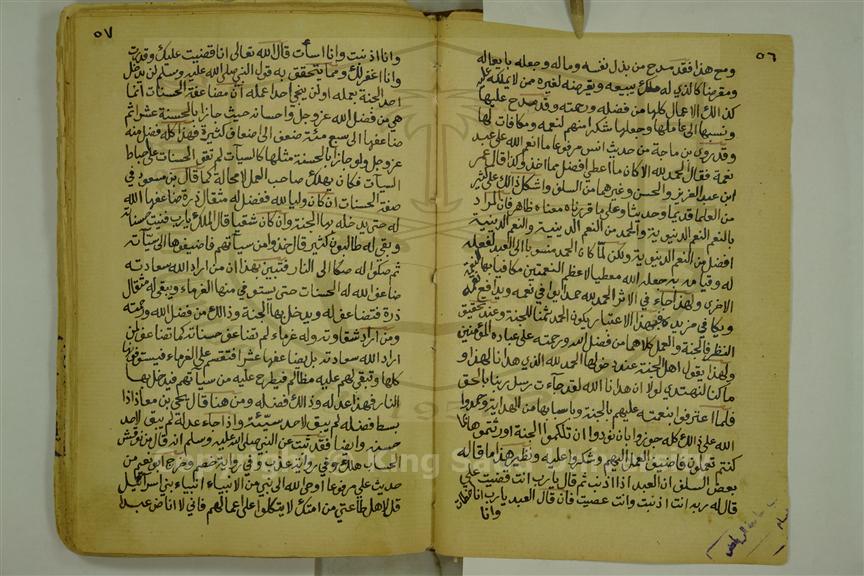 ٥٦
ومع هذا فقد مدح من بذل نفسه وماله وجعله بايعاله
ومقرضا كالذي له ملك يبيعه ويقرضه لغيره ممن لا يملكه عليه
كذلك الاعمال كلها من فضله ورحمته وقد مدح عليها
ونسبها الى عاملها وجعلها شكرا منهم لنعمه ومكافات لها
وقد روى بن ماجة من حديث انس مرفوعا ما انعم الله على عبد
نعمة فقال الحمد لله الا كان ما اعطى افضل مما اخذ وكذا قال عمر
ابن عبد العزيز والحسن وغيرهما من السلف واشكل ذلك على كثير
من العلما قديما وحديثا وعلى ما قررناه معناه ظاهر فان المراد
بالنعم النعم الدنيوية والحمد من النعم الدينية والنعم الدينية
افضل من النعم الدنيوية ولكن لما كان الحمد منسوبا الى العبد لفعله
له وقيامه به جعله الله معطيا لاعظم النعمتين مكافيا بها لنعمة
الاخرى ولهذا جاء في الاثر الحمد لله حمدا يوافي نعمه ويدافع نقمه
ويكافي مزيده فبهذا الاعتبار يكون الحمد ثمنا للجنة وعند تحقيق
النظر فالجنة والعمل كلاهما من فضل الله ورحمته على عباده المؤمنين
ولهذا يقول اهل الجنة عند دخولها الحمد لله الذي هدانا لهذا و
ما كنا لنهتدي لولا ان هدانا الله لقد جاءت رسل ربنا بالحق
فلما اعترفوا بنعمته عليهم بالجنة وباسبابها من الهداية وحمدوا
الله على ذلك كله جوزوا بان نودوا ان تلكموا الجنة اورثتموها بما
كنتم تعملون فاضيف العمل اليهم وشكروا عليه ونظير هذا ما قاله
بعض السلف ان العبد اذا اذنب ثم قال يا رب انت قضيت علي
قال له ربه انت اذنبت وانت عصيت فان قال العبد يا رب انا اخطات
وانا
٥٧
وانا اذنبت وانا اسأت قال الله تعالى انا قضيت عليك وقدرت
وانا اغفر لك ومما يتحقق به قول النبي صلى الله عليه وسلم لن يدخل
احد الجنة بعمله او لن ينجي احدا عمله ان مضاعفة الحسنات انما
هي من فضل الله عز وجل واحسانه حيث جازا بالحسنة عشرا ثم
ضاعفها الى سبع مئة ضعف الى اضعاف كثيرة فهذا كله فضل منه
عز وجل ولو جازا بالحسنة مثلها كالسيآت لم تقو الحسنات على احباط
السيآت فكان يهلك صاحب العمل لا محالة كما قال بن مسعود في
صفة الحسنات ان كان وليا لله ففضل له مثقال ذرة ضاعفها الله
له حتى يدخله بها الجنة وان كان شقيا قال الملك يا رب فنيت حسناته
وبقي له طالبون كثير قال خذوا من سيآتهم فاضيفوها الى سيآته
ثم صكوا له صكا الى النار فتبين بهذا ان من اراد الله سعادته
ضاعف الله له الحسنات حتى يستوفي منها الغرماء ويبقى له مثقال
ذرة فتضاعف له ويدخل بها الجنة وذلك من فضل الله ورحمته
ومن اراد شقاوته وله غرماء لم تضاعف حسناته كما تضاعف لمن
اراد الله سعادته بل يضاعفها عشرا فتقسم على الغرماء فيستوفونها
كلها وتبقى لهم عليه مظالم فيطرح عليه من سيآتهم فيدخل بها
النار فهذا عدله وذلك فضله ومن هنا قال يحي بن معاذ اذا
بسط فضله لم يبق لاحد سيئة واذا جاء عدله لم يبق لاحد
حسنه وايضا فقد ثبت عن النبي صلى الله عليه وسلم انه قال من نوقش
الحساب هلك وفي رواية عذب وفي رواية خصم وخرج ابو نعيم من
حديث علي مرفوعا اوحى الله الى نبي من الانبياء انبياء بني اسرائيل
قل لاهل طاعتي من امتك لا يتكلوا على اعمالهم فاني لا اناصب عبدا
Copyright © King Saud University
1957